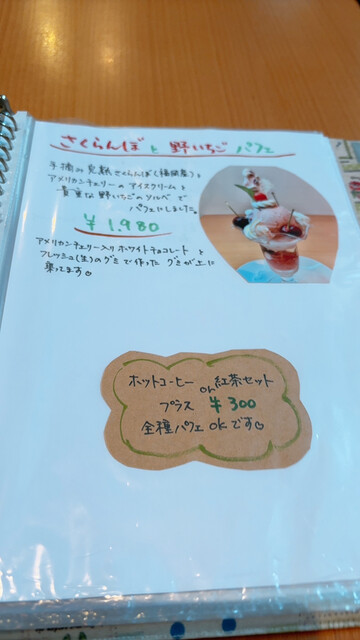 さくらんぼと野いちごパフェ
手摘の完熟さくらんぼ(福岡産)と
アメリカンチェリーのアイスクリームと
貴重な野いちごのソルベで
パフェにしました。
¥1.980
アメリカンチェリー入りホワイトチョコレートと
フレッシュ(生)のグミで作ったグミが上に
乗ってます
ホットコーヒー or 紅茶セット
プラス ¥300
全種パフェ OKです